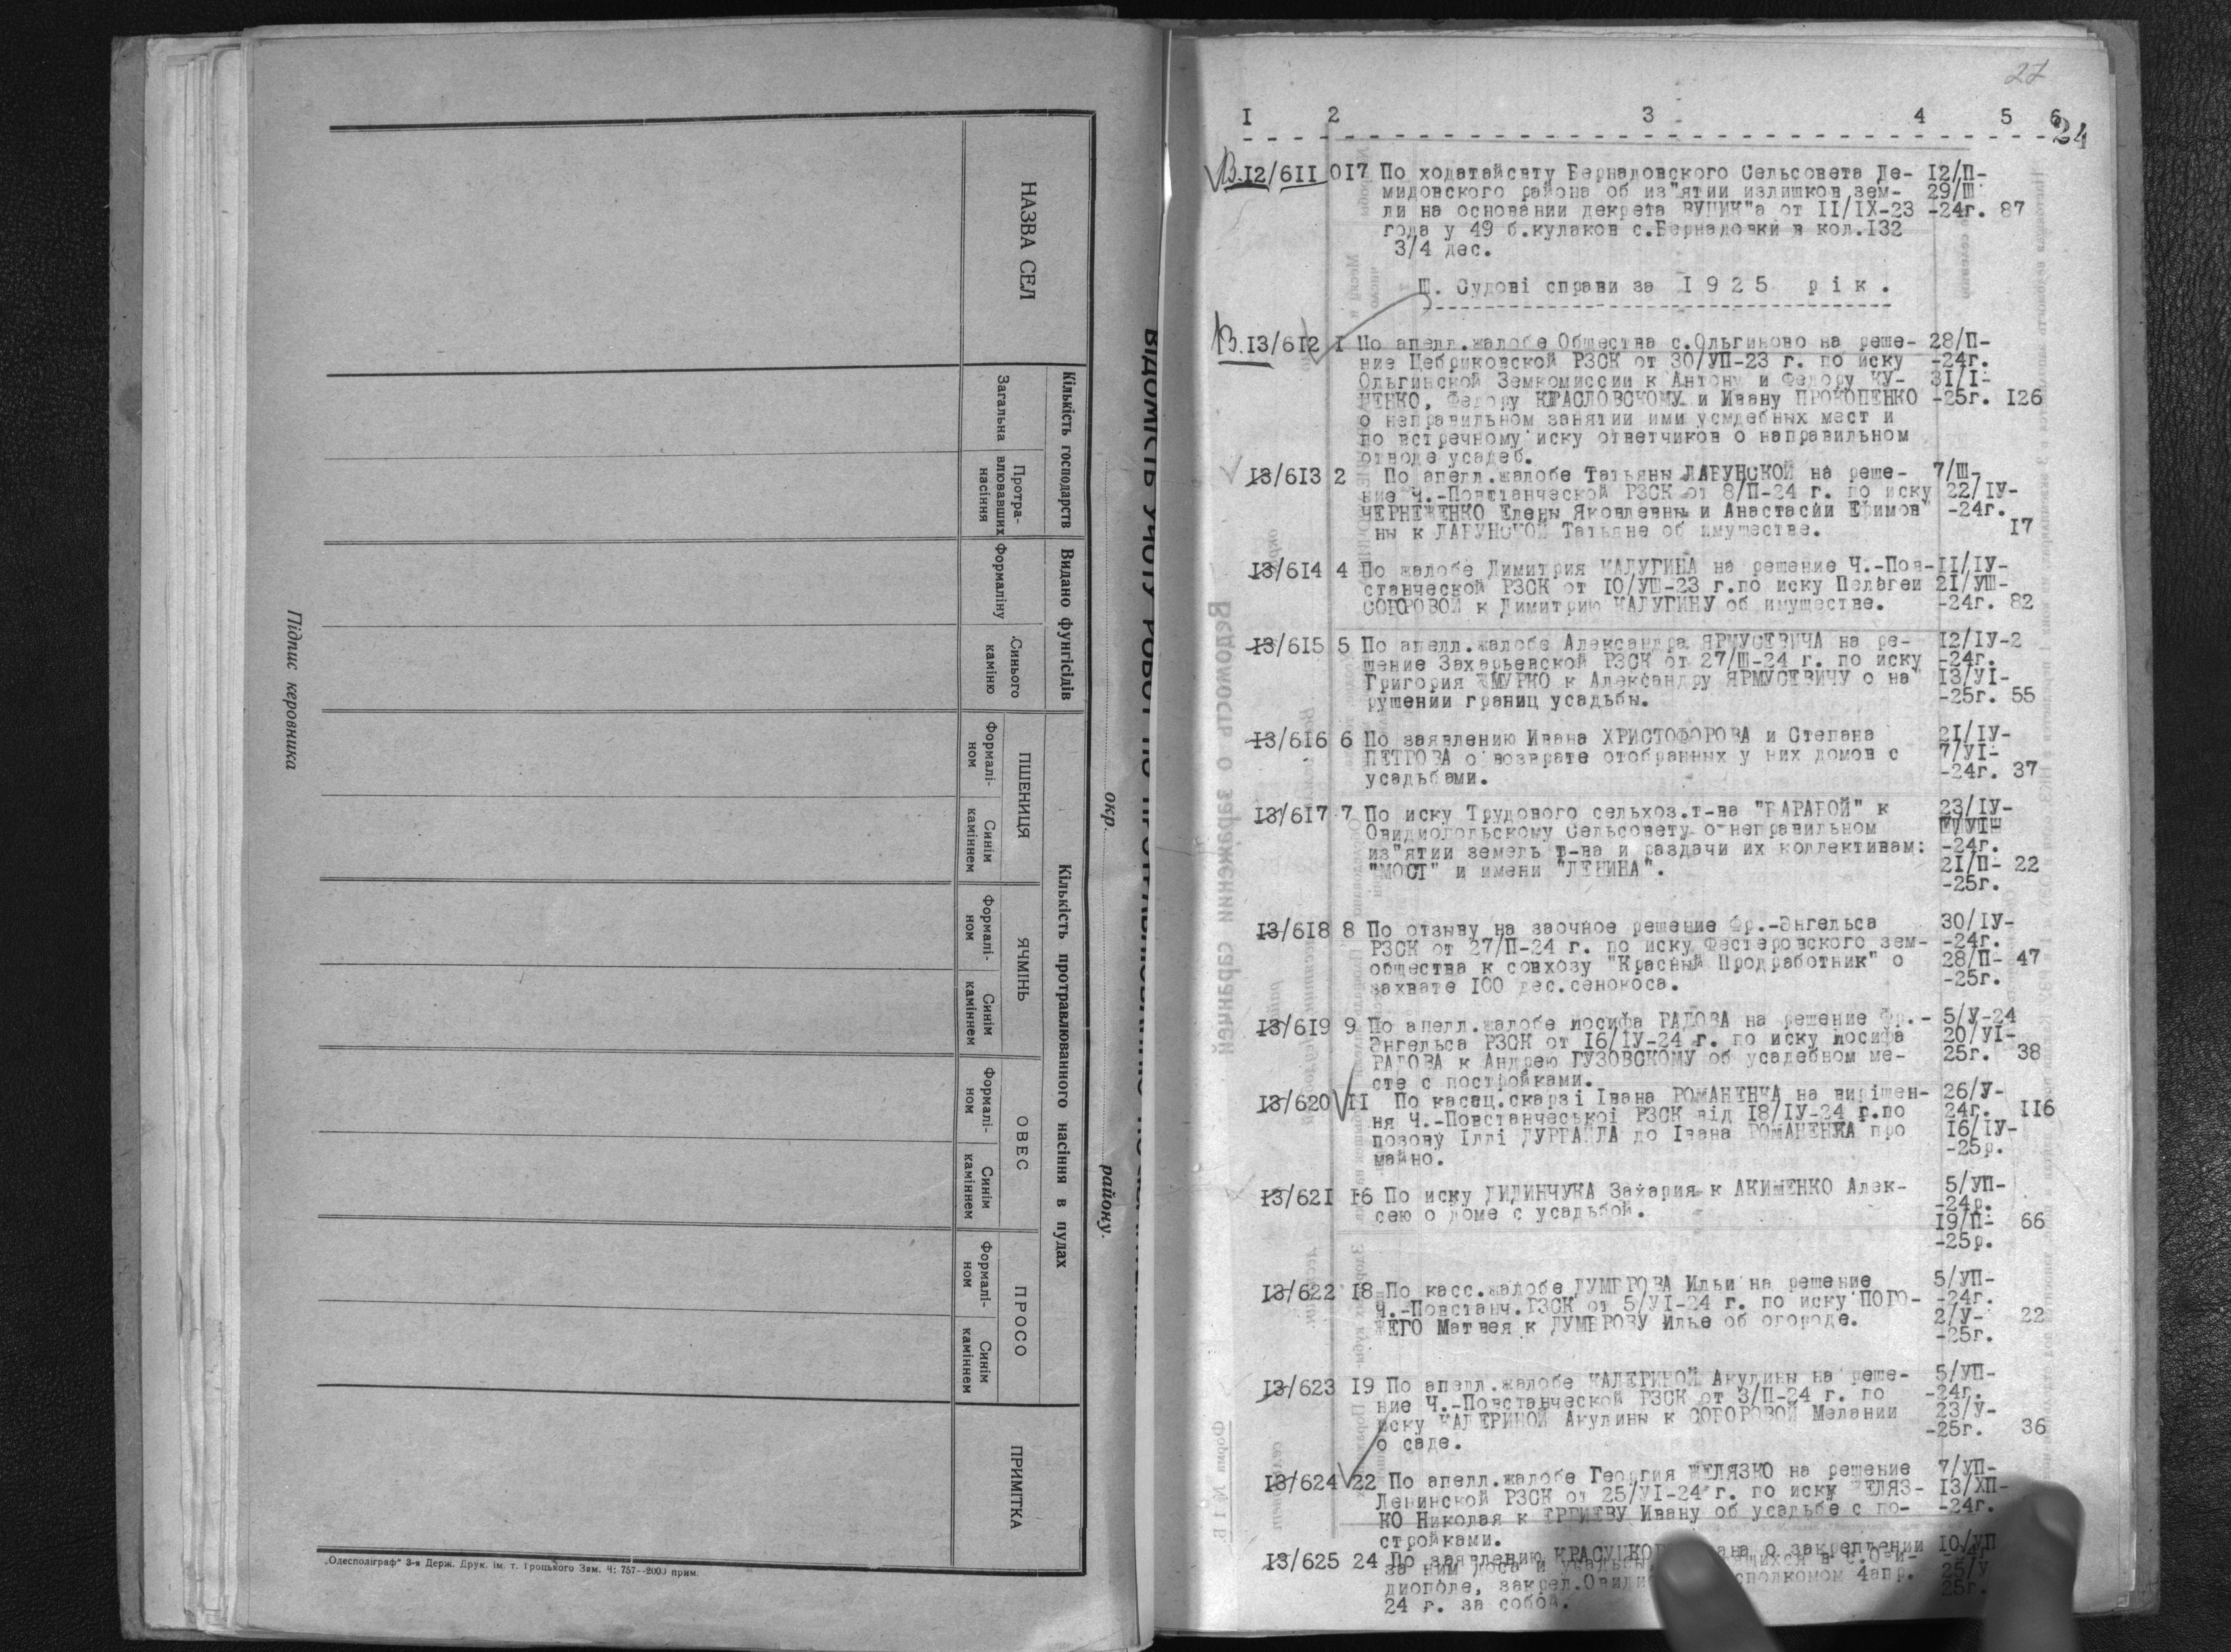 НАЗВА СЕЛ
Кількість господарств
Загальна
Протра-
влювавших
насіння
Видано фунгісідів
Формаліну
Синього
каміню
Кількість протравлюванного насіння в пудах
ПШЕНИЦЯ
Формалі-
ном
Синім
каміннем
ЯЧМІНЬ
Формалі-
ном
Синім
каміннем
ОВЕС
Формалі-
ном
Синім
каміннем
ПРОСО
Формалі-
ном
Синім
каміннем
ПРИМІТКА
Підпис керовника
окр.
району.
„Одесполіграф" 3-я Держ. Друк. ім. т. Троцького Зам. Ч: 757--2000 прим.
27
I 2 3 4 5 6
24
В.I2/6II 0I7 По ходатайству Бернадовского Сельсовета Де- I2/П-
мидовского района об из"ятии излишков зем- 29/Ш
ли на основании декрета ВУЦИК"а от II/IX-23 -24г. 87
года у 49 б.кулаков с.Бернадовки в кол.I32
3/4 дес.
Ш. Судові справи за I 9 2 5 рік.
В.I3/6I2 I По апелл.жалобе Общества с.Ольгиново на реше- 28/П-
ние Цебриковской РЗСК от 30/УП-23 г. по иску -24г.
Ольгинской Земкомиссии к Антону и Федору КУ- 3I/I-
НЕНКО, Федору КРАСЛОВСКОМУ и Ивану ПРОКОПЕНКО -25г. I26
о неправильном занятии ими усмдебных мест и
по встречному иску ответчиков о направильном
отводе усадеб.
I3/6I3 2 По апелл.жалобе Татьяны ЛАБУНСКОЙ на реше- 7/Ш-
ние Ч.-Повстанческой РЗСК от 8/П-24 г. по иску 22/IУ-
ЧЕРНЕЖЕНКО Елены Яковлевны и Анастасии Ефимов -24г.
ны к ЛАБУНСКОЙ Татьяне об имуществе. I7
I3/6I4 4 По жалобе Димитрия КАЛУГИНА на решение Ч.-Пов- II/IУ-
станческой РЗСК от I0/УШ-23 г.по иску Пелагеи 2I/УШ-
СОБОРОВОЙ к Димитрию КАЛУГИНУ об имуществе. -24г. 82
I3/6I5 5 По апелл.жалобе Александра ЯРМУСЕВИЧА на ре- I2/IУ-2
шение Захарьевской РЗСК от 27/Ш-24 г. по иску -24г.
Григория ЖМУРКО к Александру ЯРМУСЕВИЧУ о на I3/УI-
рушении границ усадьбы. -25г. 55
I3/6I6 6 По заявлению Ивана ХРИСТОФОРОВА и Степана 2I/IУ-
ПЕТРОВА о возврате отобранных у них домов с 7/УI-
усадьбами. -24г. 37
I3/6I7 7 По иску Трудового сельхоз.т-ва "БАРАБОЙ" к 23/IУ-
Овидиопольскому Сельсовету о неправильном
из"ятии земель т-ва и раздачи их коллективам: -24г.
"МОСТ" и имени "ЛЕНИНА". 2I/П- 22
-25г.
I3/6I8 8 По отзыву на заочное решение Фр.-Энгельса 30/IУ-
РЗСК от 27/П-24 г. по иску Фестеровского зем- -24г.
общества к совхозу "Красный Продработник" о 28/П- 47
захвате I00 дес.сенокоса. -25г.
I3/6I9 9 По апелл.жалобе Иосифа РАДОВА на решение Фр.- 5/У-24
Энгельса РЗСК от I6/IУ-24 г. по иску Иосифа 20/УI-
РАДОВА к Андрею ГУЗОВСКОМУ об усадебном ме- 25г. 38
сте с постройками.
I3/620 II По касац.скарзі Івана РОМАНЕНКА на вирішен- 26/У-
ня Ч.-Повстанческоі РЗСК від I8/IУ-24 г.по 24г. II6
позову Іллі ДУРБАЙЛА до Івана РОМАНЕНКА про I6/IУ-
майно. -25р.
I3/62I I6 По иску ДИДИНЧУКА Захария к АКИМЕНКО Алек- 5/УП-
сею о доме с усадьбой. -24р.
I9/П- 66
-25р.
I3/622 I8 По касс.жалобе ДУМБРОВА Ильи на решение 5/УП-
Ч.-Повстанч.РЗСК от 5/УI-24 г. по иску ПОГО- -24г.
ЖЕГО Матвея к ДУМБРОВУ Илье об огороде. 2/У- 22
-25г.
I3/623 I9 По апелл.жалобе КАЛЕРИНОЙ Акулины на реше- 5/УП-
ние Ч.-Повстанческой РЗСК от 3/П-24 г. по -24г.
иску КАЛЕРИНОЙ Акулины к СОБОРОВОЙ Мелании 23/У-
о саде. -25г. 36
I3/624 22 По апелл.жалобе Георгия ЖЕЛЯЗКО на решение 7/УП-
Ленинской РЗСК от 25/УI-24 г. по иску ЖЕЛЯЗ- I3/ХП-
КО Николая к Ивану об усадьбе с по- -24г.
стройками.
I3/625 24 По заявлению о закреплении I0/УП
за ним и усадьбы
диополе, закрел. 4апр. 25/У
24 г. за собой. 25г.